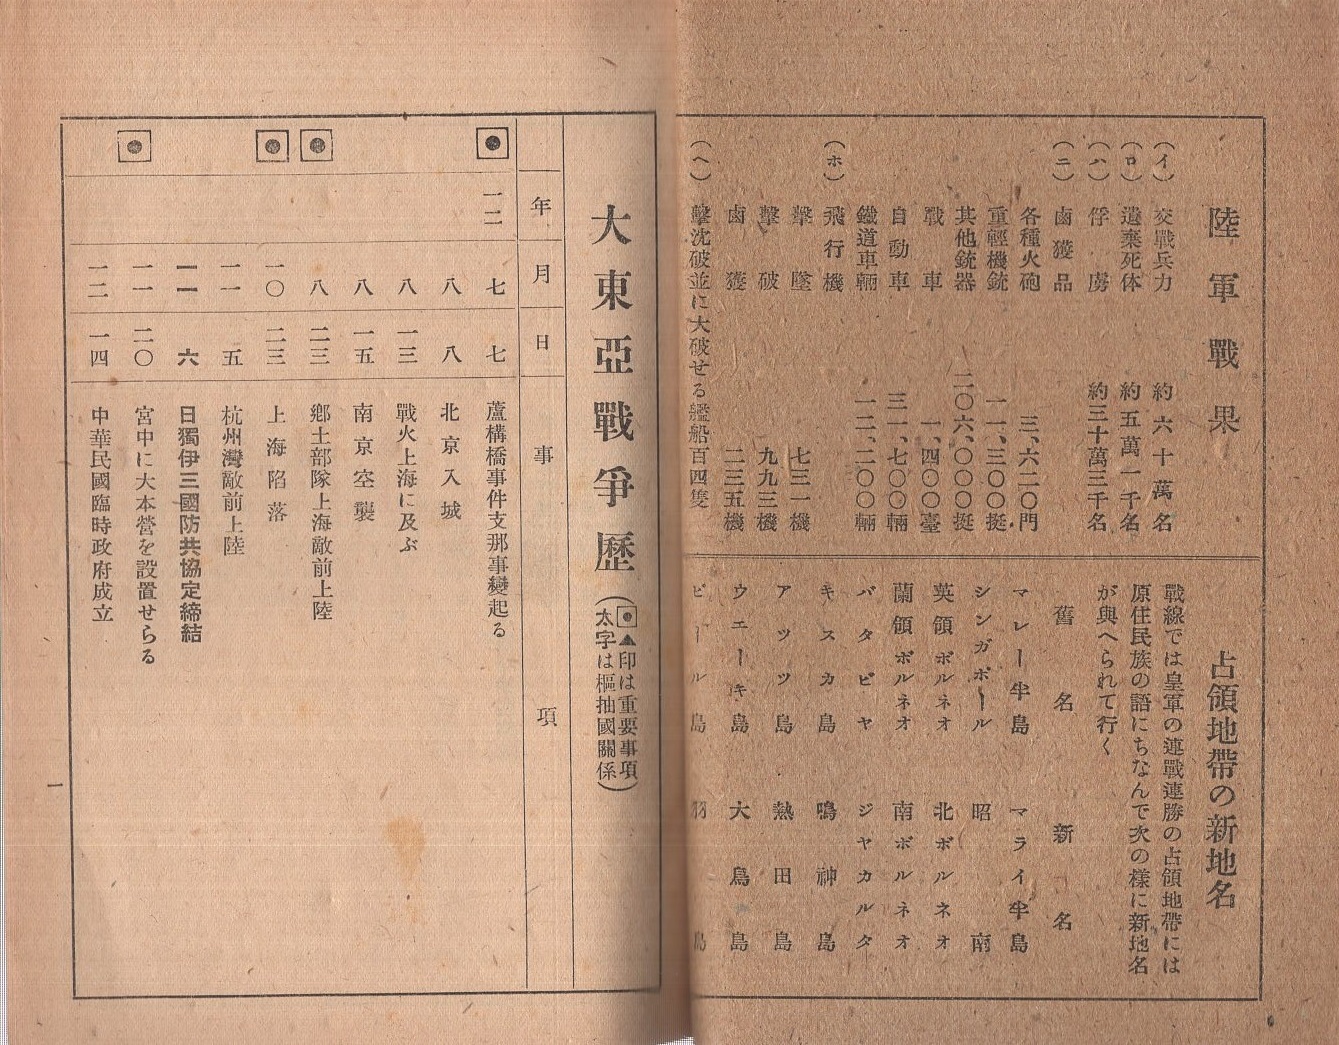 陸軍戰果
(イ) 交戰兵力 約六十萬名
(ロ) 遺棄死体 約五萬一千名
(ハ) 俘虜 約三十萬三千名
(ニ) 鹵獲品
各種火砲 三、六二〇門
重輕機銃 一一、三〇〇挺
其他銃器 二〇六、〇〇〇挺
戰車 一、四〇〇臺
自動車 三一、七〇〇輛
鐵道車輛 一二、二〇〇輛
(ホ) 飛行機
擊墜 七三一機
擊破 九九三機
鹵獲 二三五機
(ヘ) 擊沈破並に大破せる艦船百四隻
占領地帶の新地名
戰線では皇軍の連戰連勝の占領地帶には
原住民族の語にちなんで次の樣に新地名
が與へられて行く
舊名 新名
マレー半島 マライ半島
シンガポール 昭南
英領ボルネオ 北ボルネオ
蘭領ボルネオ 南ボルネオ
バタビヤ ジヤカルタ
キスカ島 鳴神島
アツツ島 熱田島
ウエーキ島 大鳥島
ビール島 羽島
大東亞戰爭歷(▣▲印は重要事項
太字は樞抽國關係)
年 月 日 事項
▣ 一二 七 七 蘆構橋事件支那事變起る
八 八 北京入城
八 一三 戰火上海に及ぶ
八 一五 南京空襲
▣ 八 二三 鄕土部隊上海敵前上陸
▣ 一〇 二三 上海陷落
一一 五 杭州灣敵前上陸
一一 六 日獨伊三國防共協定締結
▣ 一一 二〇 宮中に大本營を設置せらる
一二 一四 中華民國臨時政府成立
一